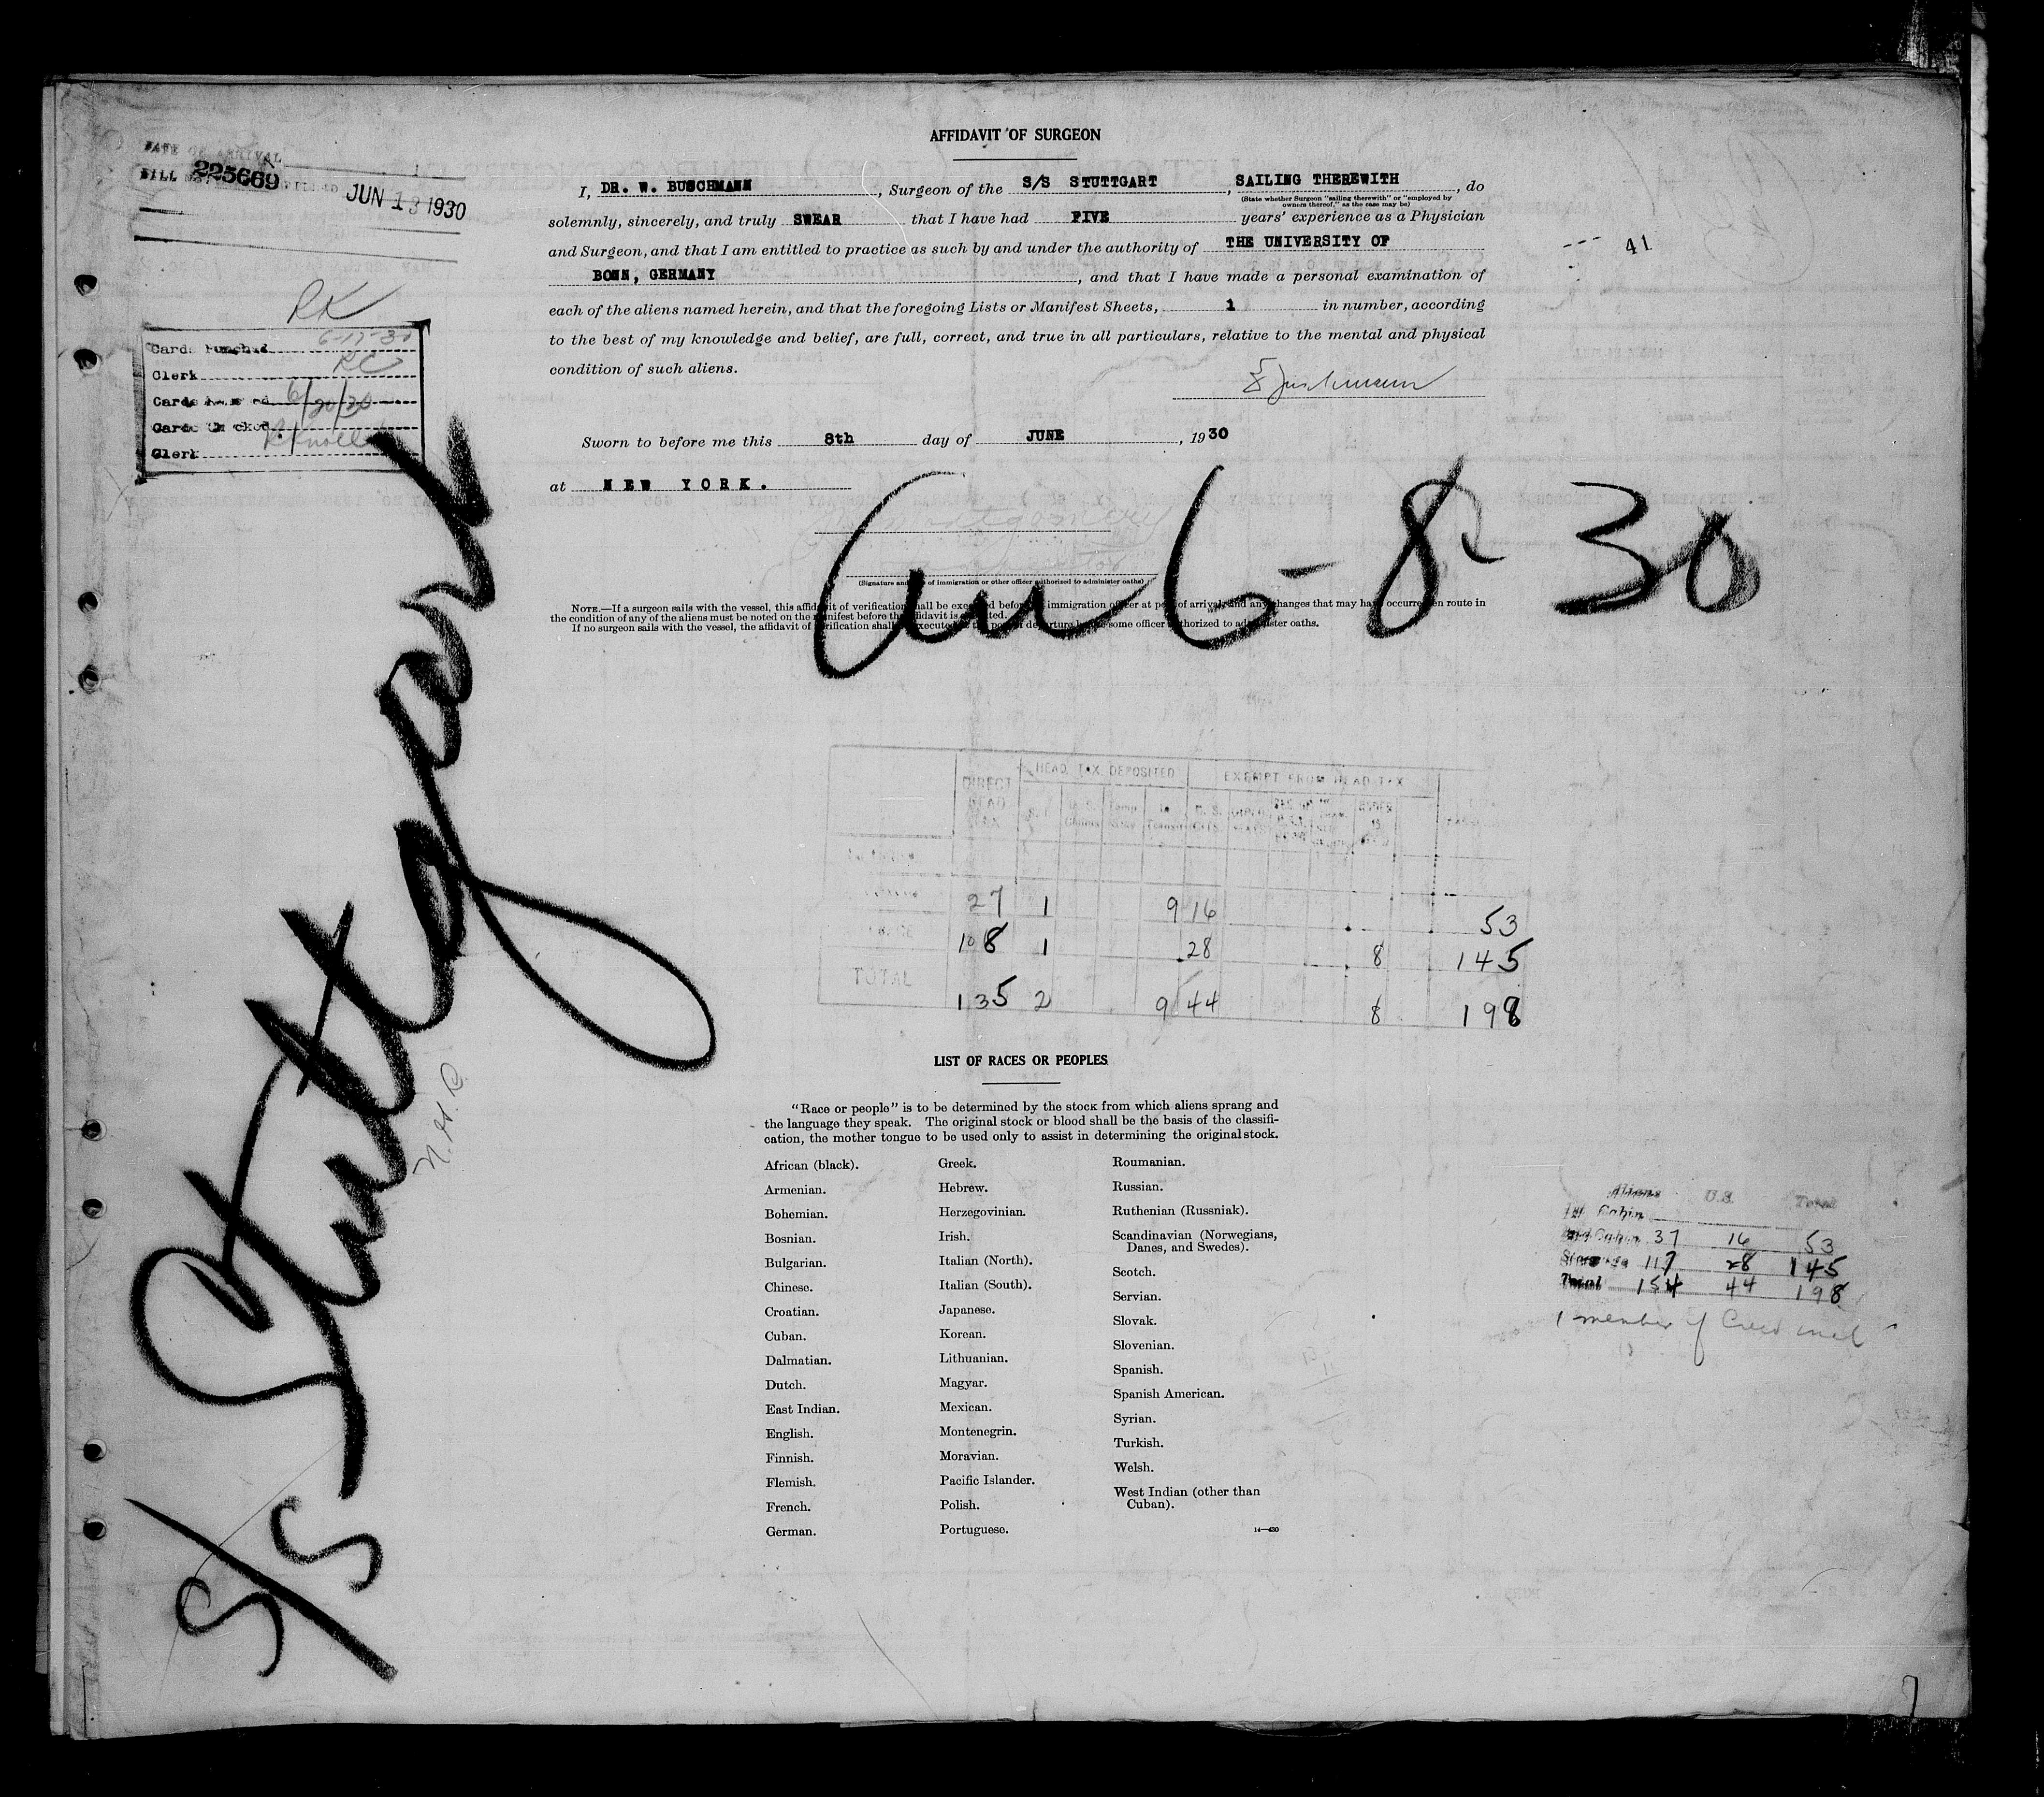 AFFIDAVIT OF SURGEON
DATE OF ARRIVAL
BILL 225669 FILED JUN 13 1930
I, DR. W. BUSCHMANN, Surgeon of the S/S STUTTGART, SAILING THEREWITH, do
(State whether Surgeon "sailing therewith" or "employed by
owners thereof," as the case may be)
solemnly, sincerely, and truly SWEAR that I have had FIVE years' experience as a Physician
and Surgeon, and that I am entitled to practice as such by and under the authority of THE UNIVERSITY OF
BONN, GERMANY, and that I have made a personal examination of
each of the aliens named herein, and that the foregoing Lists or Manifest Sheets, 1 in number, according
to the best of my knowledge and belief, are full, correct, and true in all particulars, relative to the mental and physical
condition of such aliens.
41
RK
Cards Punched 6-17-30
Clerk RC
Cards 6/20/30
Cards Checked
Clerk
Sworn to before me this 8th day of JUNE, 1930
at NEW YORK.
(Signature and title of immigration or other officer authorized to administer oaths)
6-8-30
NOTE.—If a surgeon sails with the vessel, this affidavit of verification shall be executed before an immigration officer at port of arrival, and any changes that may have occurred en route in
the condition of any of the aliens must be noted on the manifest before the affidavit is executed.
If no surgeon sails with the vessel, the affidavit of verification shall be executed at the port of departure before some officer authorized to administer oaths.
S/S Stuttgart
N.H.C.
DIRECT HEAD TAX HEAD TAX DEPOSITED EXEMPT FROM HEAD TAX
27 1 9 16 53
108 1 28 8 145
TOTAL 135 2 9 44 8 198
LIST OF RACES OR PEOPLES
"Race or people" is to be determined by the stock from which aliens sprang and
the language they speak. The original stock or blood shall be the basis of the classifi-
cation, the mother tongue to be used only to assist in determining the original stock.
African (black).
Armenian.
Bohemian.
Bosnian.
Bulgarian.
Chinese.
Croatian.
Cuban.
Dalmatian.
Dutch.
East Indian.
English.
Finnish.
Flemish.
French.
German.
Greek.
Hebrew.
Herzegovinian.
Irish.
Italian (North).
Italian (South).
Japanese.
Korean.
Lithuanian.
Magyar.
Mexican.
Montenegrin.
Moravian.
Pacific Islander.
Polish.
Portuguese.
Roumanian.
Russian.
Ruthenian (Russniak).
Scandinavian (Norwegians,
Danes, and Swedes).
Scotch.
Servian.
Slovak.
Slovenian.
Spanish.
Spanish American.
Syrian.
Turkish.
Welsh.
West Indian (other than
Cuban).
14—430
Aliens U.S. Total
1st Cabin
2nd Cabin 37 16 53
Steerage 117 28 145
Total 154 44 198
1 member of Crew incl
7